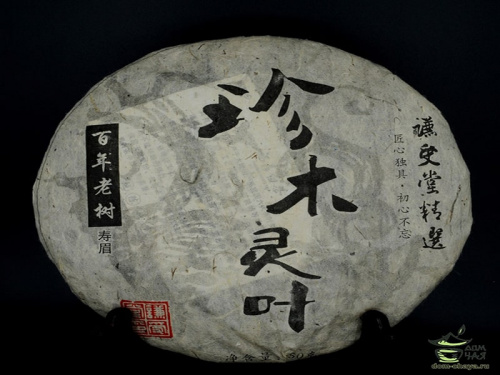 珍木灵叶
百年老树
寿眉
匠心独具·初心不忘
净含量
ДОМ
ЧАЯ
dom-chaya.ru